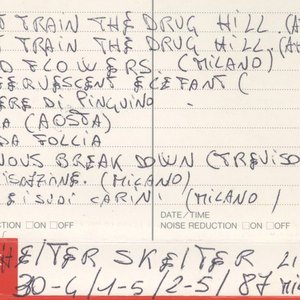 T TRAIN THE DRUG HILL. (A
T TRAIN THE DRUG HILL. (A
D FLOWERS (MILANO)
ERVESCENT ELEFANT (
ERE DI PINGUINO
A (AOSTA)
DA FOLLIA
VOUS BREAK DOWN (TREVISO
(MILANO)
EISUDI CARINI (MILANO)
DATE/TIME
CTION □ON □OFF NOISE REDUCTION □ON □OFF
HELTER SKELTER LI
30-4/1-5/2-5/87 MI